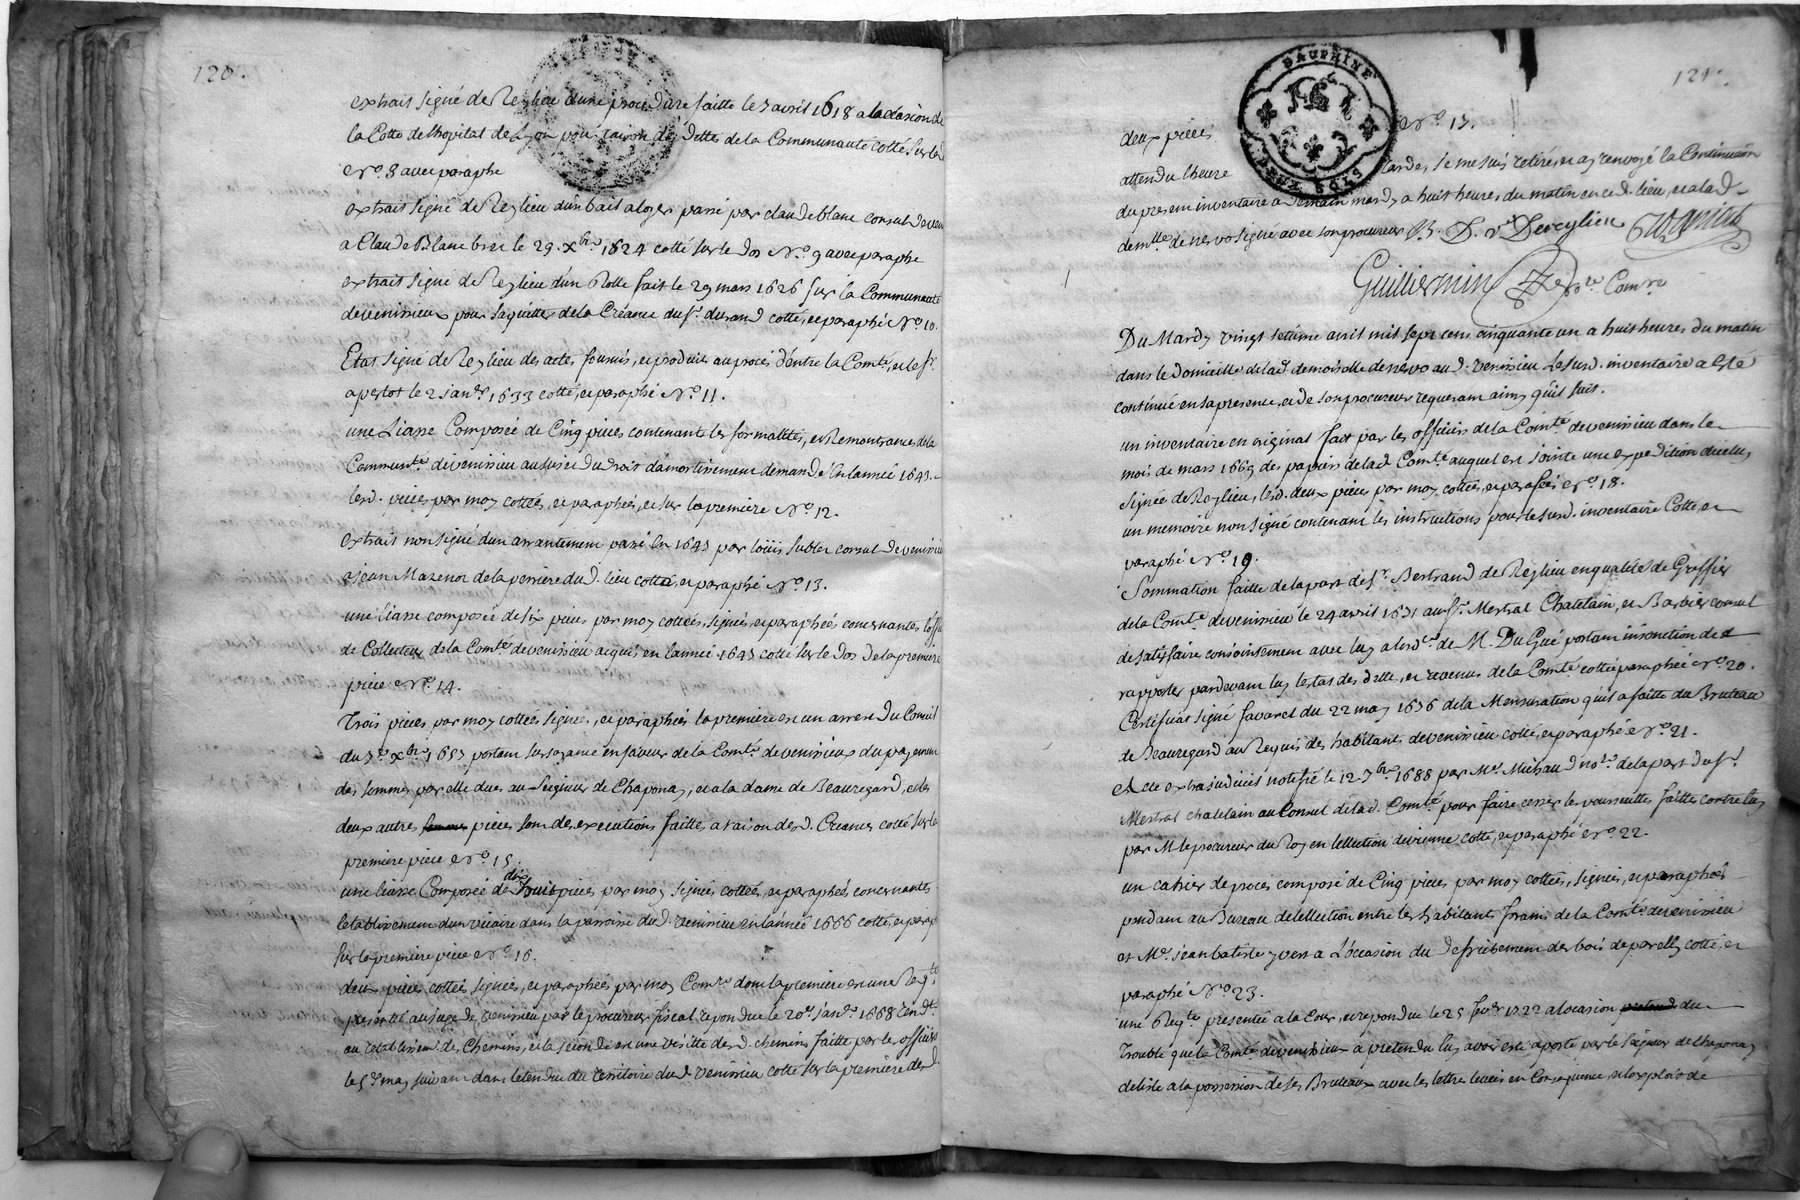 120.
extrait signé de Reylieu d'une procedure faitte le 7 avril 1618 a la
la Cotte de lhopital de Lyon pour raison des Dettes de la Communauté cotté sur le d
N.º 8 avec paraphe
extrait signé de Reylieu d'un bail a loyer passé par claude blanc consul de veni
a Claude Blanc brec le 29. Xbre 1624 cotté sur le dos N.º 9 avec paraphe
extrait signé de Reylieu d'un Rolle fait le 29 mars 1626 sur la Communauté
de venissieux pour l'aquitter de la Créance du Sr. durand cotté, et paraphé N.º 10.
Etat signé de Reylieu des actes fournis, et produits au procés d'entre la Comté, et le Sr.
apertot le 2 janer 1633 cotté, et paraphé N.º 11.
une Liasse Composée de Cinq pieces contenant les formalités, et Remontrances de la
Communté. de venissieu au sujet du droit d'amortissement demandé En l'année 1643.
lesd. pieces par moy cottées, et paraphées, et sur la première N.º 12.
extrait non signé d'un arrantement passé En 1643 par loüis sublet consul de venissieu
a jean Mazenod de la perriere du d. lieu cotté, et paraphé N.º 13.
une liasse composée de six pieces par moy cottées, signées, et paraphées concernantes l'offi
de Collecteur de la Comté de venissieu acquis en l'année 1643 cotté sur le Dos de la première
pièce N.º 14.
Trois pieces par moy cottées, signées, et paraphées la première est un arrest du Conseil
du 3e. Xbre 1657 portant surseance en faveur de la Comté de venissieux du payement
des sommes par elle dues au Seigneur de Chaponay, et a la dame de Beauregard, et les
deux autres pieces sont des executions faitte a raison desd. Creances cotté sur la
première piece N.º 15.
une liasse Composée de dix huit pieces par moy signées cottées, et paraphées concernantes
l'etablissement d'un vicaire dans la parroisse du d. venissieu en l'année 1666 cotté, et paraph
sur la première piece N.º 16.
deux pieces cottées signées, et paraphées par moy Comre dont la première est une Reqte
presentée au juge de venissieu par le procureur fiscal repondue le 20e janer 1668 tendt.
au retablissemt. des Chemins, et la seconde est une visitte desd. chemins faitte par les officiers
le 5e may suivant dans l'etendue du territoire du d. venissieu cotté sur la première des d
121.
deux pieces N.º 17.
attendu l'heure tarde, je me suis retiré, et ay renvoyé la Continuation
du present inventaire a demain mardy a huit heures du matin en ce d. lieu, et a lad.
demlle de nervo signé avec son procureur
Guilliermin Comre
Du Mardy vingt setième avril mil sept cens cinquante un a huit heures du matin
dans le domicille de lad. demoiselle de nervo aud. venissieu Le susd. inventaire a esté
continué en sa presence, et de son procureur requerant ainsy qu'il suit.
un inventaire en original fait par les officiers de la Comté de venissieu dans le
mois de mars 1669 des papiers de lad. Comté auquel est jointe une expedition d'icelluy
signée de Reylieu, lesd. deux pieces par moy cottées, et parafées N.º 18.
un memoire non signé contenant les instructions pour le susd. inventaire Cotté, et
paraphé N.º 19.
Sommation faitte de la part de Sr. Bertrand de Reylieu en qualité de Greffier
de la Comté de venissieu le 24 avril 1671 au Sr. Mestral Chatelain, et Barbier consul
de satisfaire conjointement avec luy a lordce de M. Du Gué portant injonction de
rapporter pardevant luy les etas des dettes, et revenus de la Comté cottée paraphée N.º 20.
Certificat signé favaret du 22 may 1676 de la Mensuration qu'il a faitte du Bruteau
de Beauregard au Requis des habitants de venissieu cotté, et paraphé N.º 21.
Acte extrajudiciel notifié le 12. 7bre 1688 par Me. Michaud nore de la part du Sr.
Mestral chatelain au Consul de lad. Comté pour faire cesser les poursuittes faittes contre luy
par M le procureur du Roy en l'ellection de vienne cotté, et paraphé N.º 22.
un cahier de procés composé de Cinq pieces par moy cottées, signées, et paraphées
pendant au Bureau de l'ellection entre les habitants forains de la Comté de venissieu
et Me. jean batiste yvers a L'occasion du defrichement des bois de parelly cotté, et
paraphé N.º 23.
une Reqte presentée a la Cour, et repondue le 25 fevr 1722 a l'ocasion du
trouble que la Comté de venissieux a pretendu luy avoir esté aporté par le Seigneur de chaponay
delisle a la possession de ses Bruteaux avec les lettres levées en Consequence, et l'exploit de
DAUPHINE
DEUX SOLS